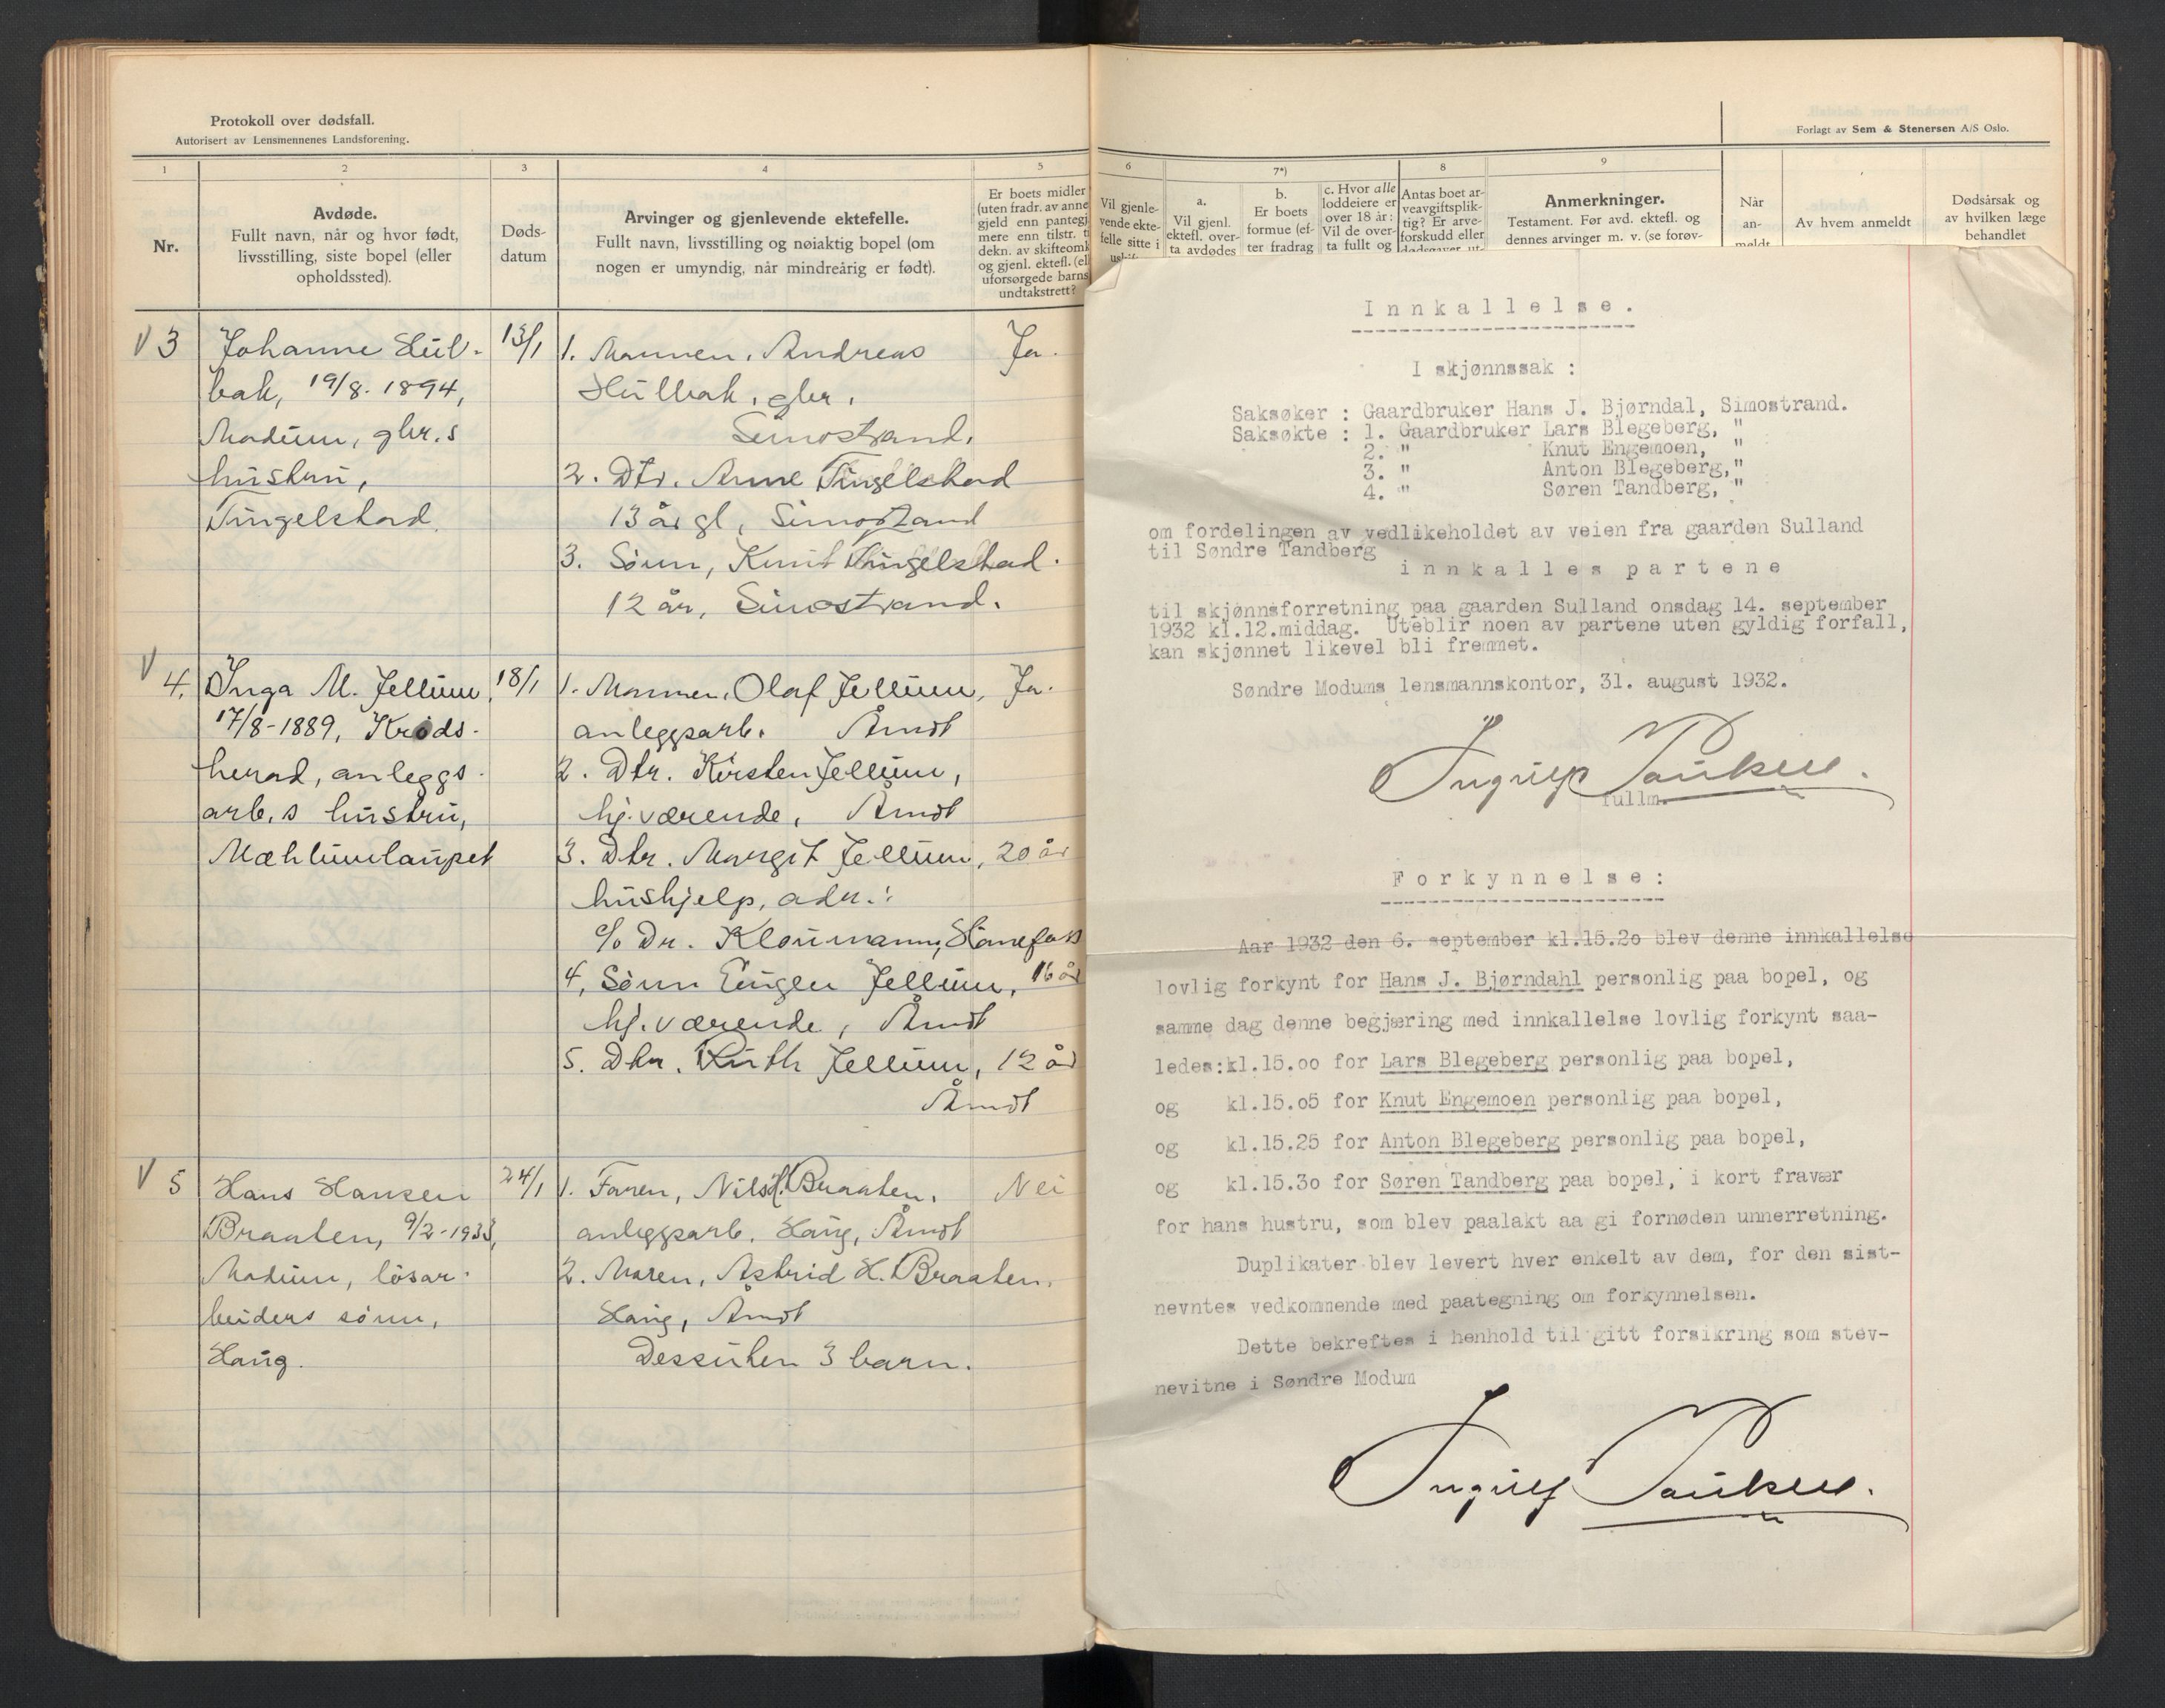 Protokoll over dødsfall.
Autorisert av Lensmennenes Landsforening.
1
2
3
4
5
Nr.
Avdøde.
Fullt navn, når og hvor født,
livsstilling, siste bopel (eller
opholdssted).
Døds-
datum
Arvinger og gjenlevende ektefelle.
Fullt navn, livsstilling og nøiaktig bopel (om
nogen er umyndig, når mindreårig er født).
Er boets midler
(uten fradr. av anne
gjeld enn pantegj
mere enn tilstr. t
dekn. av skifteomk
og gjenl. ektefl. (el
uforsørgede barns
undtakstrett?
V 3
Johanne Hul-
bak, 19/8. 1894,
Modum, gbr.s
hustru,
Tingelstad.
13/1
1. Mannen, Andreas
Hulbak, gbr,
Simostrand.
2. Dtr. Anne Tingelstad
13 år gl, Simostrand
3. Sønn, Knut Tingelstad.
12 år, Simostrand.
Ja.
V 4.
Inga M. Jellum,
17/8-1889, Krøds-
herad, anleggs-
arb.s hustru,
Mæhlumlaupet
18/1
1. Mannen, Olaf Jellum,
anleggsarb. Åmot
2. Dtr. Kirsten Jellum,
hj.værende, Åmot
3. Dtr. Margit Jellum, 20 år
hushjelp, adr.:
c/o Dr. Kloumann, Hønefoss
4, Sønn Eugen Jellum, 16 år
hj.værende, Åmot
5. Dtr. Ruth Jellum, 12 år
Åmot
Ja.
V 5
Hans Hansen
Braaten, 9/2-1933,
Modum, løsar-
beiders sønn,
Haug.
24/1
1. Faren, Nils H. Braaten,
anleggsarb. Haug, Åmot
2. Moren, Astrid H. Braaten,
Haug, Åmot
Dessuten 3 barn.
Nei
Forlagt av Sem & Stenersen A/S Oslo.
6
7*)
8
9
Vil gjenle-
vende ekte-
felle sitte i
a.
Vil gjenl.
ektefl. over-
ta avdødes
b.
Er boets
formue (ef-
ter fradrag
c. Hvor alle
loddeiere er
over 18 år:
Vil de over-
ta fullt og
Antas boet ar-
veavgiftsplik-
tig? Er arve-
forskudd eller
dødsgaver ut-
Anmerkninger.
Testament. Før avd. ektefl. og
dennes arvinger m. v. (se forøv-
Når
an-
meldt
Av hvem anmeldt
Dødsårsak og
av hvilken læge
behandlet
Innkallelse.
I skjønnssak :
Saksøker : Gaardbruker Hans J. Bjørndal, Simostrand.
Saksøkte : 1. Gaardbruker Lars Blegeberg, "
2. " Knut Engemoen, "
3. " Anton Blegeberg, "
4. " Søren Tandberg, "
om fordelingen av vedlikeholdet av veien fra gaarden Sulland
til Søndre Tandberg
innkalles partene
til skjønnsforretning paa gaarden Sulland onsdag 14. september
1932 kl.12.middag. Uteblir noen av partene uten gyldig forfall,
kan skjønnet likevel bli fremmet.
Søndre Modums lensmannskontor, 31. august 1932.
fullm.
Forkynnelse:
Aar 1932 den 6. september kl.15.20 blev denne innkallelse
lovlig forkynt for Hans J. Bjørndahl personlig paa bopel, og
samme dag denne begjæring med innkallelse lovlig forkynt saa-
ledes:kl.15.oo for Lars Blegeberg personlig paa bopel,
og kl.15.o5 for Knut Engemoen personlig paa bopel,
og kl.15.25 for Anton Blegeberg personlig paa bopel,
og kl.15.3o for Søren Tandberg paa bopel, i kort fravær
for hans hustru, som blev paalakt aa gi fornøden unnerretning.
Duplikater blev levert hver enkelt av dem, for den sist-
nevntes vedkommende med paategning om forkynnelsen.
Dette bekreftes i henhold til gitt forsikring som stev-
nevitne i Søndre Modum